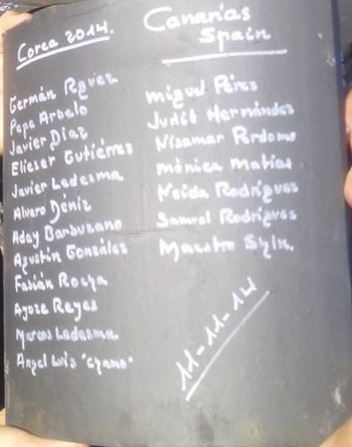 Corea 2014.
Germán Reyes
Pepe Arbelo
Javier Díaz
Eliezer Gutiérres
Javier Ledesma
Alvaro Déniz
Aday Barbuzano
Agustín Gonzáles
Fabián Rocha
Ayoze Reyes
Marcos Ledesma
Angel Luis
Canarias
Spain
Miguel Péres
Judit Hernándes
Nisamar Perdomo
mónica Matías
Neida Rodrígues
Samuel Rodrígues
Maestro
11-11-14